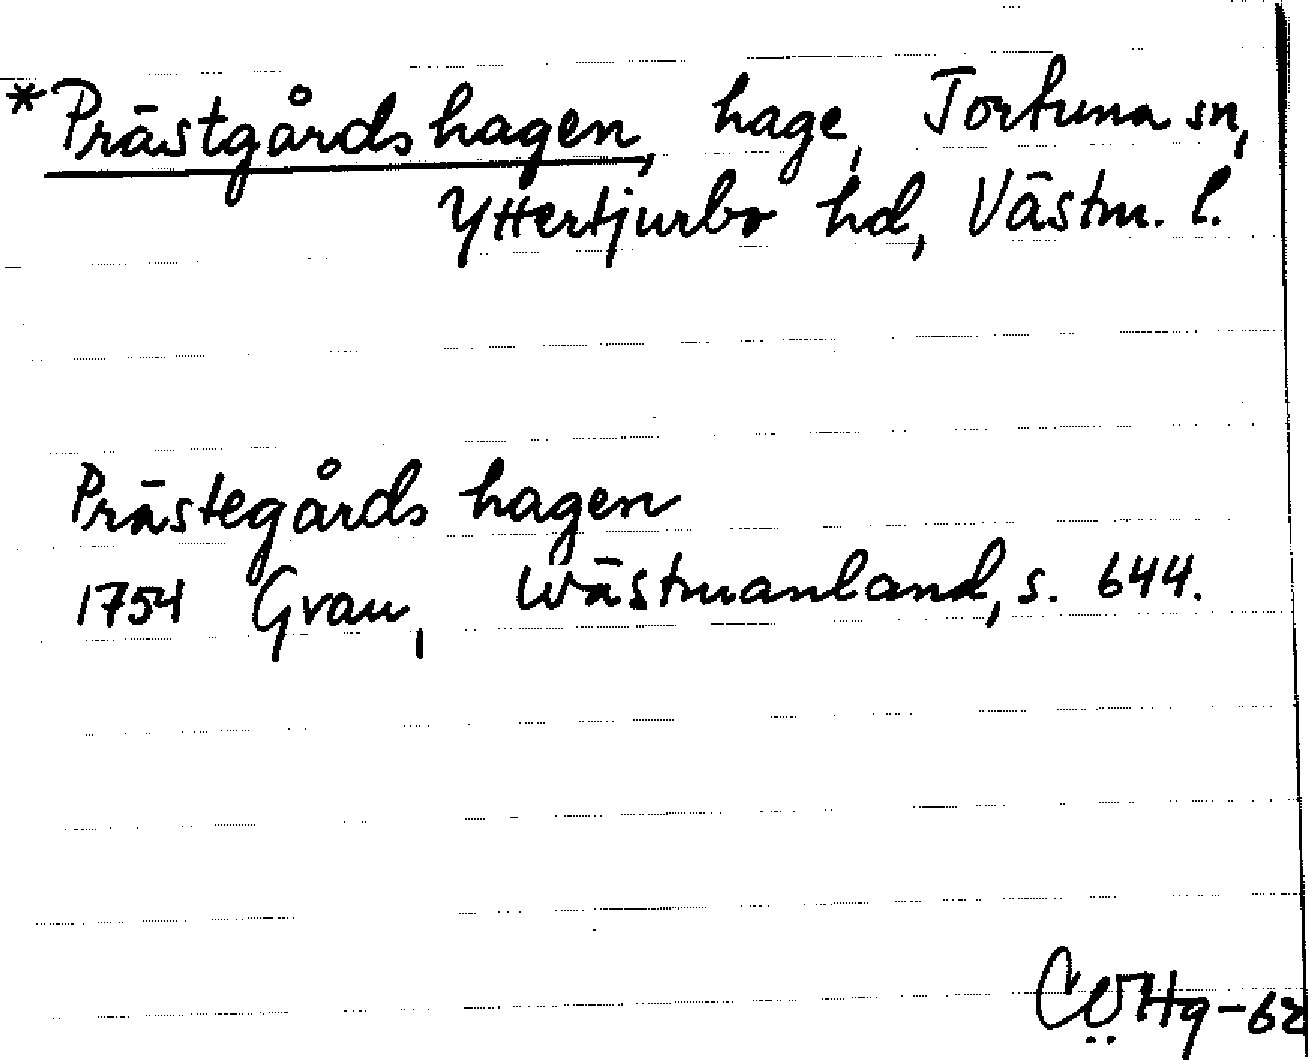 *Prästgårdshagen, hage, Tortuna sn,
Yttertjurbo hd, Västm. l.
Prästegårds hagen
1754 Grau, Wästmanland, s. 644.
CÖHg-62